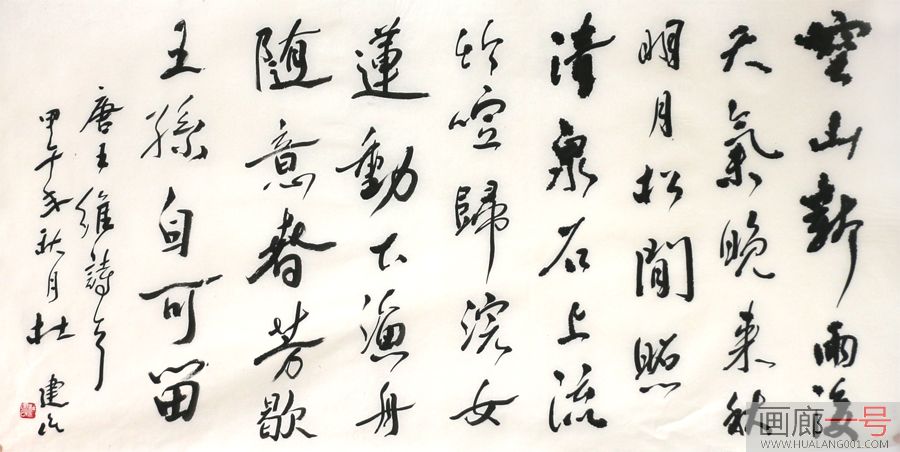 空山新雨後
天氣晚来秋
明月松間照
清泉石上流
竹喧歸浣女
蓮動下漁舟
随意春芳歇
王孫自可留
唐王維詩
甲午年秋月杜建
画廊一号
WWW.HUALANG001.COM